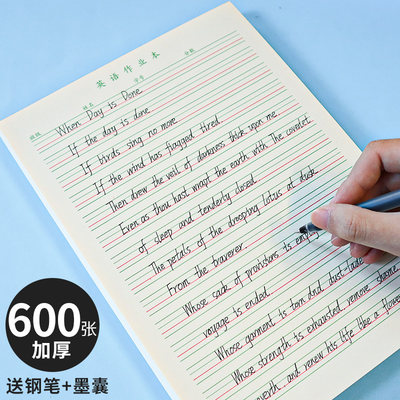 英语作业本
班级 姓名 学号 分数
When Day is Done
If the day is done
If birds sing no more
If the wind has flagged tired
Then drew the veil of darkness thick upon me
Even as thou hast wrapt the earth with The coverlet
of sleep and tenderly closed
The petals of the drooping lotus at dusk
From the traverer.
Whose sack of provisions is empty
voyage is ended.
Whose garment is torn and dust-lade
Whose strength is exhausted remove shame
overth and renew his life like a flowe
600张
加厚
送钢笔+墨囊